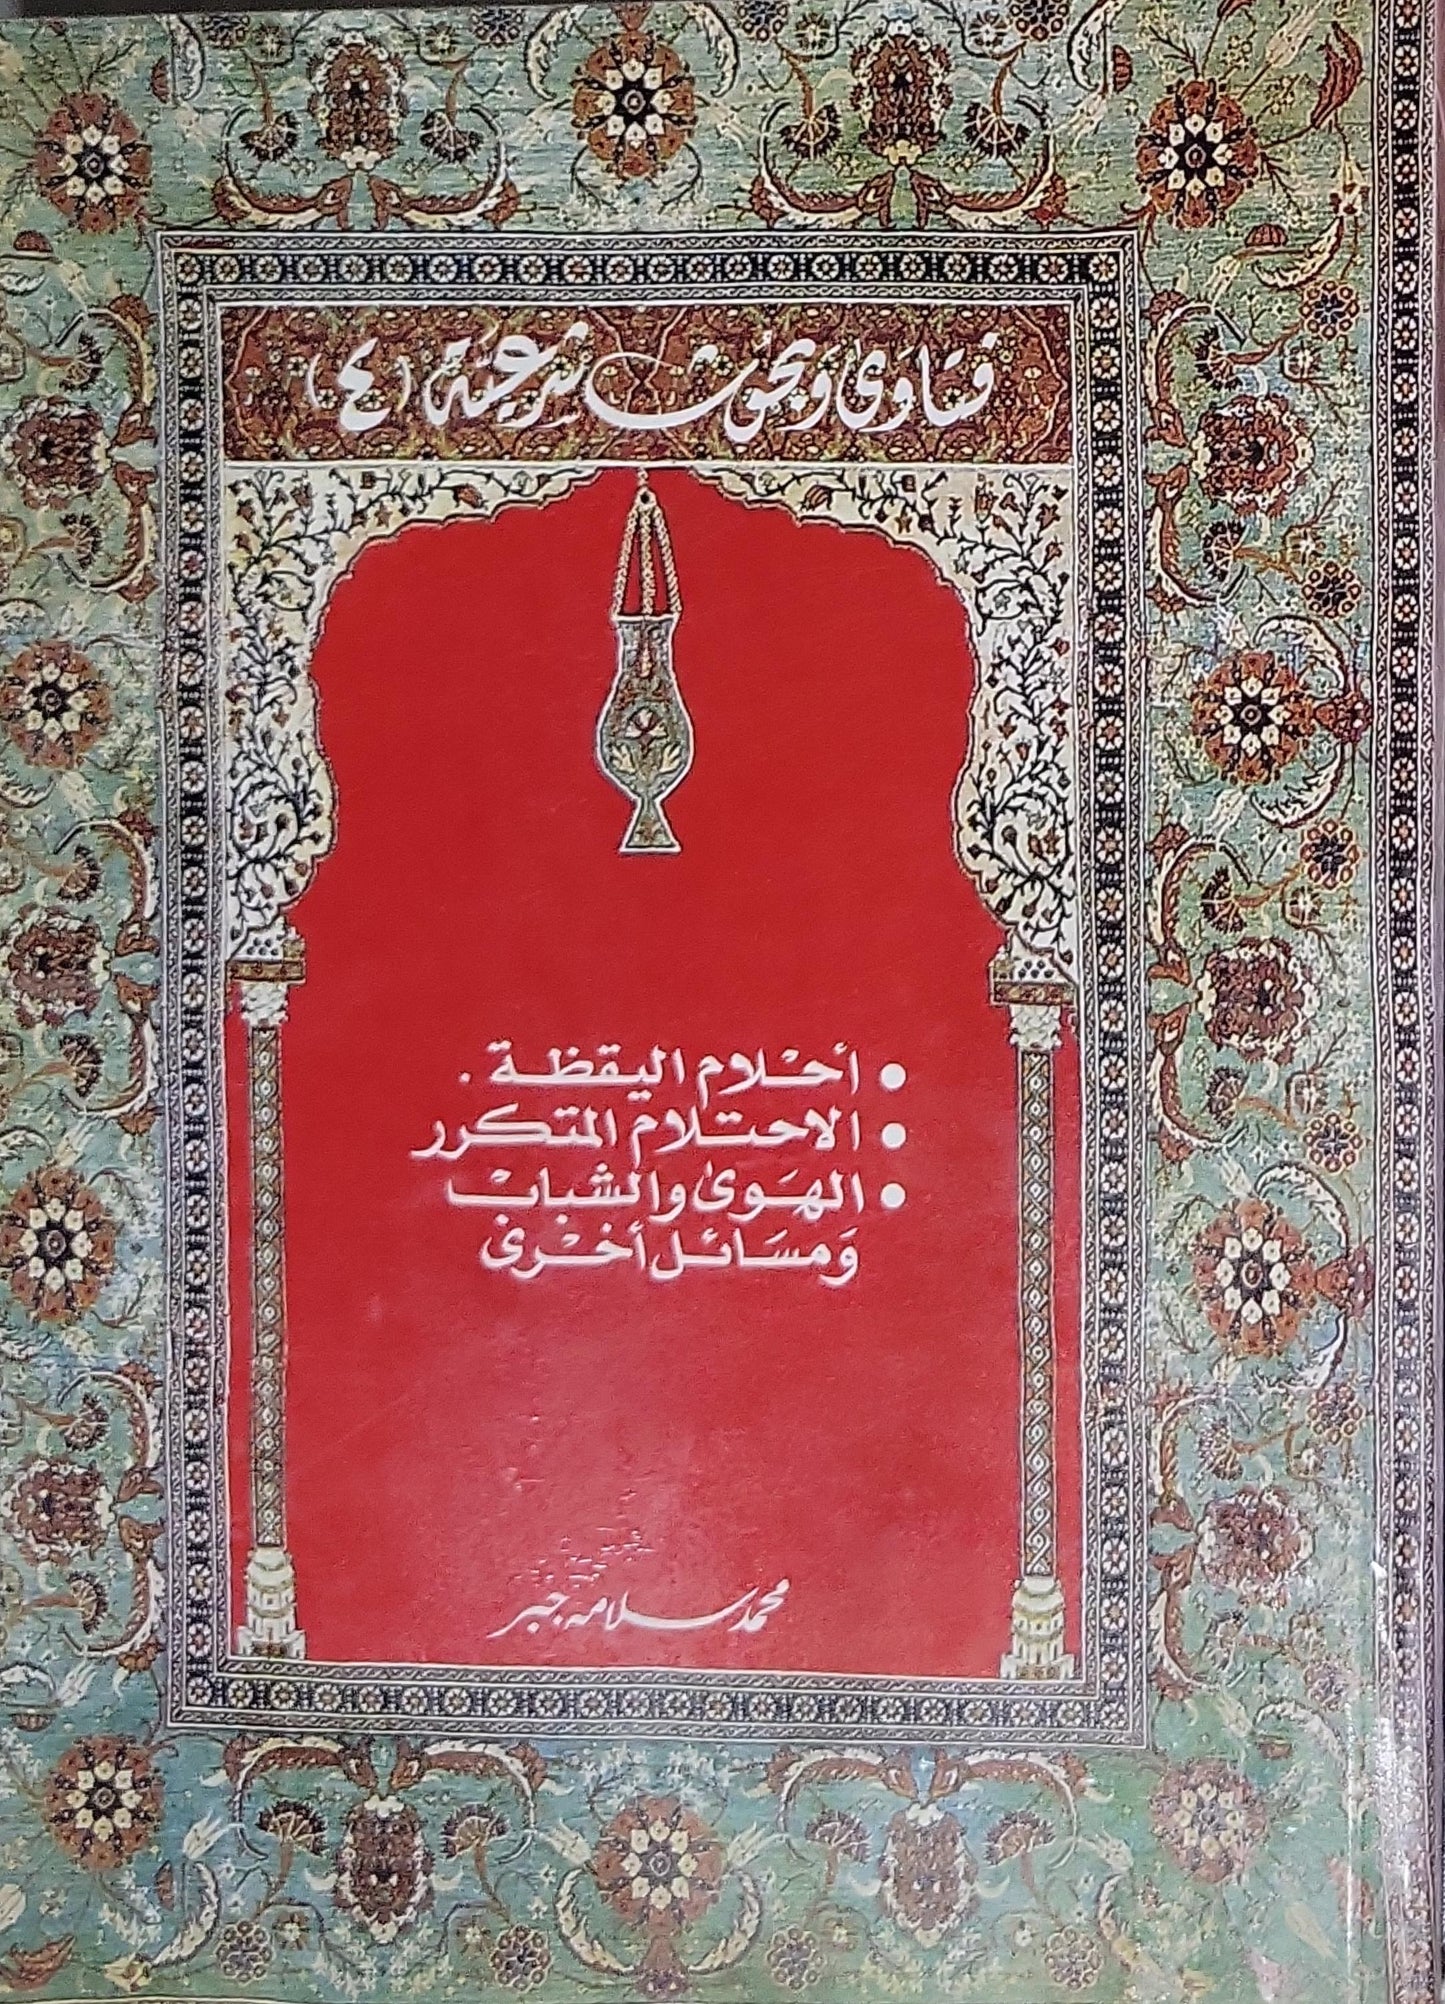 فتاوى وبحوث شرعية (٤)
• أحْلام اليقظة .
• الاحتلام المتكرر
• الهَوىٰ والشبابْ
وَمسَائل أخْرىٰ
محمد سلامه جبر